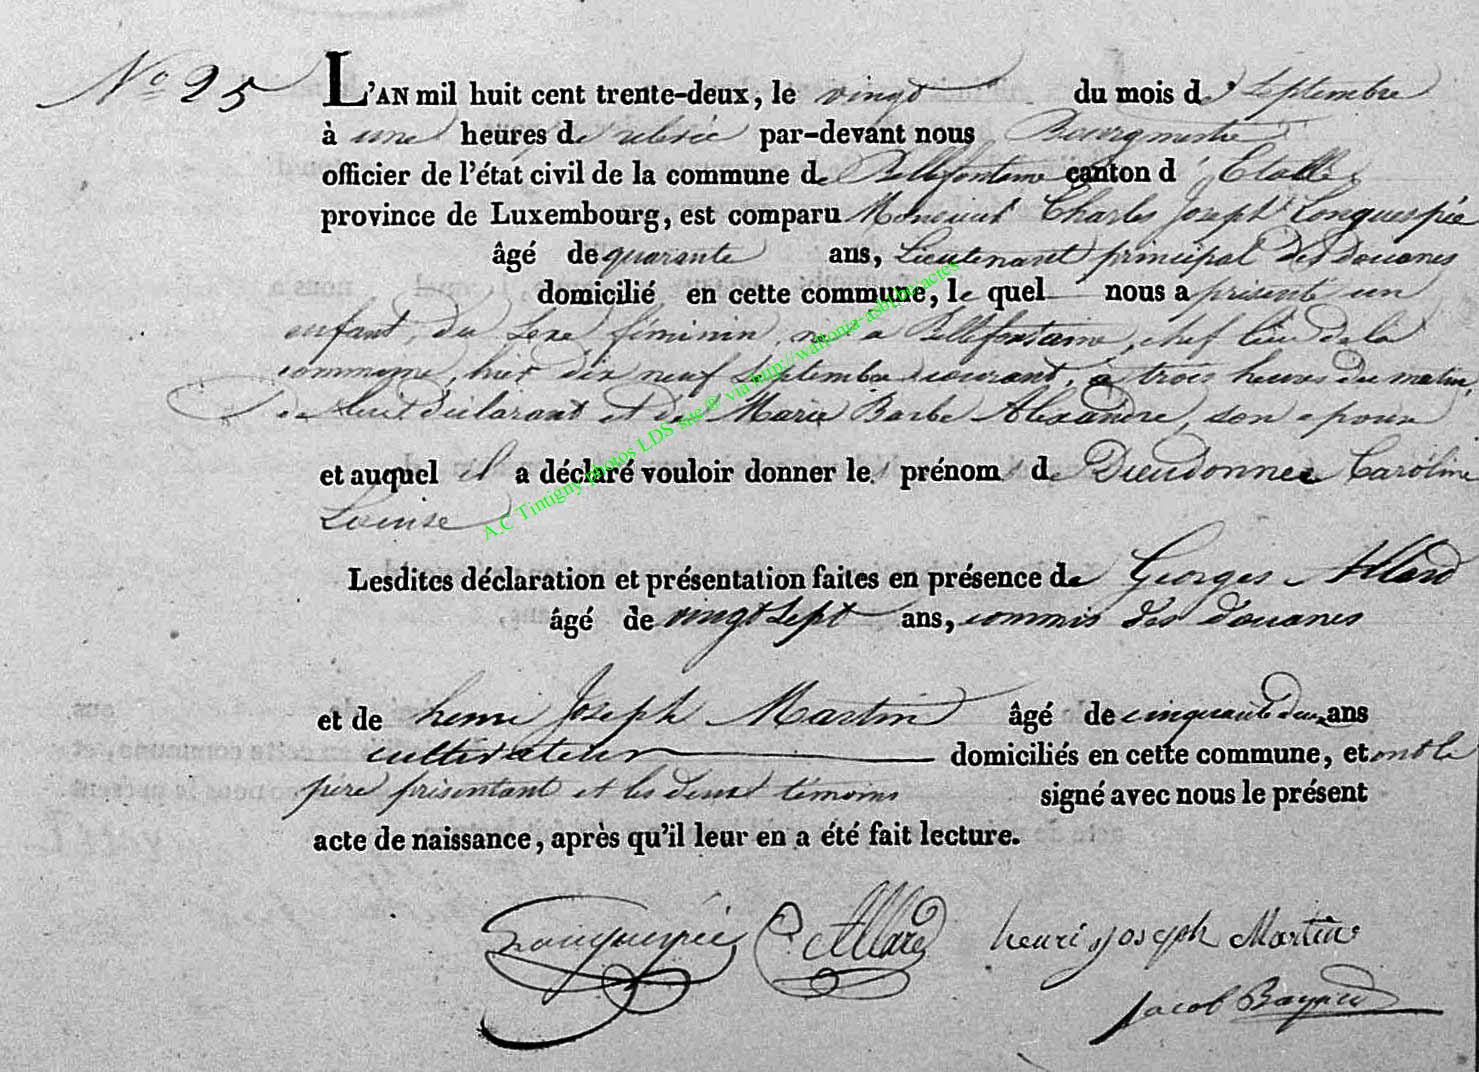 No 25
L'AN mil huit cent trente-deux, le vingt du mois de Septembre
à une heures de relevée par-devant nous Bourgmestre
officier de l'état civil de la commune de Bellefontaine canton d'Etalle
province de Luxembourg, est comparu Monsieur Charles Joseph Longuespée
âgé de quarante ans, Lieutenant principal des Douanes
domicilié en cette commune, le quel nous a présenté un
enfant, du sexe féminin, né a Bellefontaine, chef lieu de la
commune, hier dix neuf Septembre courant, à trois heures du matin,
de lui déclarant et de Marie Barbe Alexandre, son epouse
et auquel il a déclaré vouloir donner les prénoms de Dieudonnée Caroline
Louise
Lesdites déclaration et présentation faites en présence de Georges Allard
âgé de vingt sept ans, commis des douanes
et de henri Joseph Martin âgé de cinquante deux ans
cultivateur domiciliés en cette commune, et ont le
père présentant et les deux témoins signé avec nous le présent
acte de naissance, après qu'il leur en a été fait lecture.
Longuespée G. Allard henri Joseph Martin
Jacob
A.C Tintigny photos LDS site © via http://wallonia-asbl.be/actes